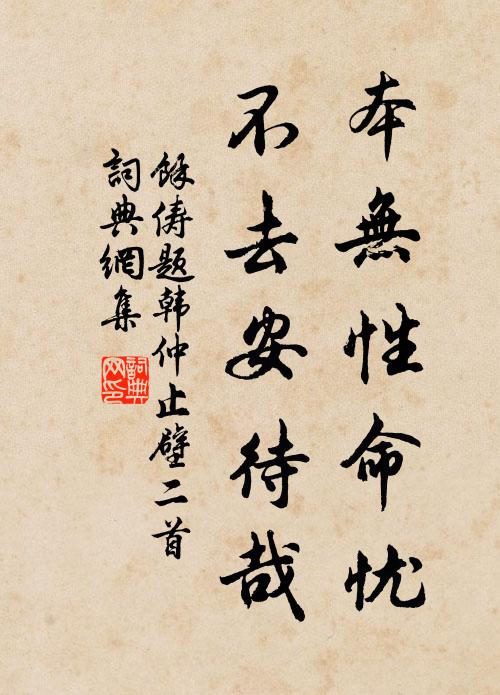 本無性命忧
不去安待哉
馀俦题韩仲止壁二首
詞典網集
詞典网印